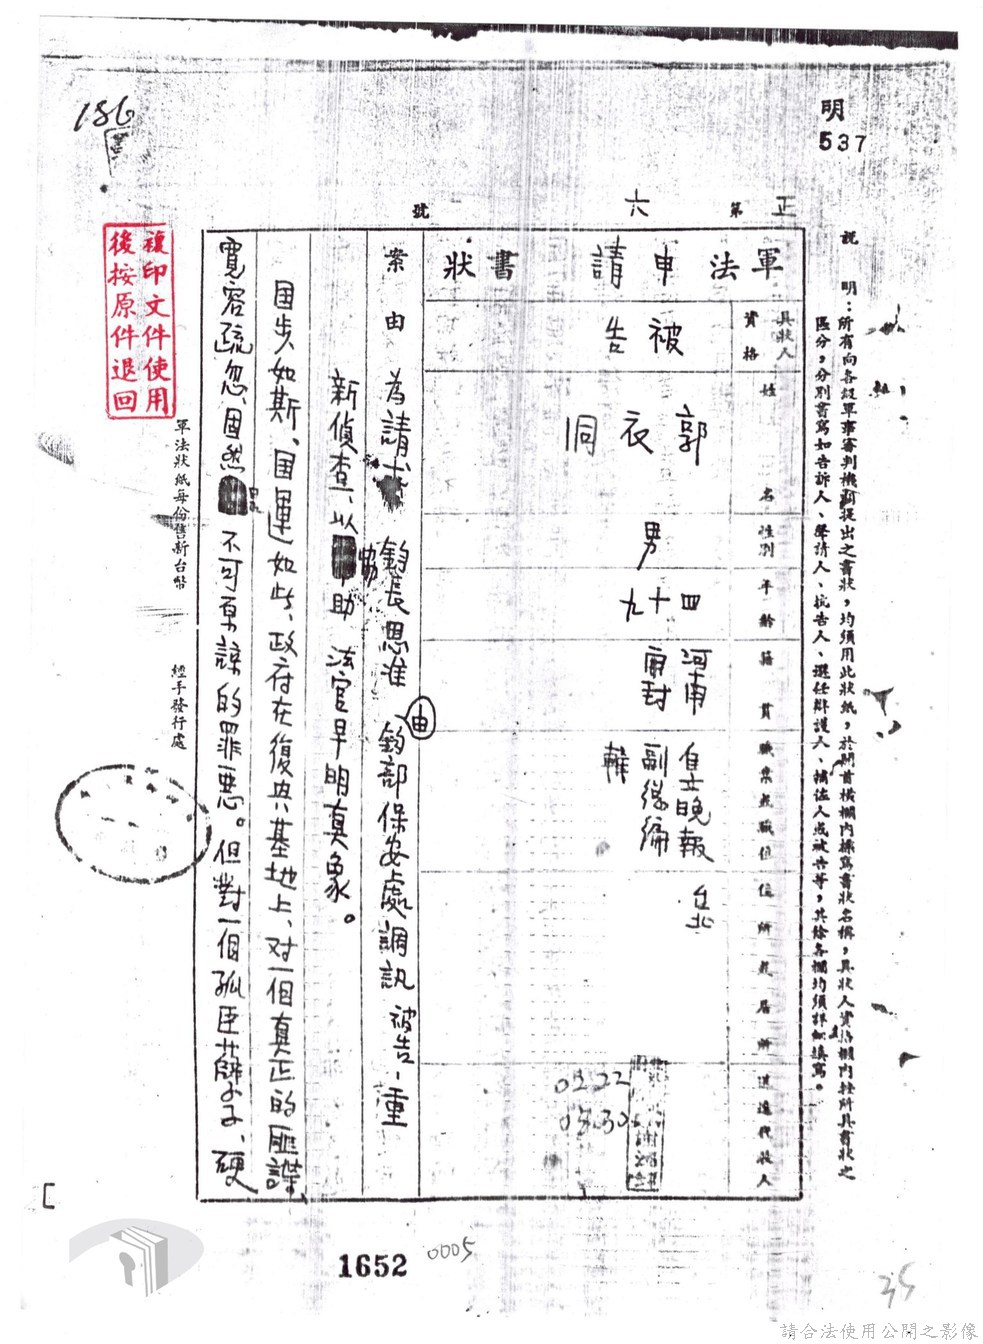 186
明
537
正 第 六 號
說 明：所有向各級軍事審判機關提出之書狀，均須用此狀紙，於開首橫欄內標寫書狀名稱，具狀人資格欄內按所具書狀之
區分，分別書寫如告訴人、聲請人、抗告人、選任辯護人、輔佐人或被告等，其餘各欄均須詳細填寫。
軍法申請書狀
具狀人資格
被告
姓名
郭衣洞
性別
男
年齡
四十九
籍貫
河南
開封
職業或職位
自立晚報
副總編
輯
住所或居所
台北
送達代收人
0222
0830
案由
為請求 鈞長恩准 鈞部保安處調訊被告、重
由
新偵查、以協助 法官早明真象。
國步如斯、國運如此、政府在復興基地上、对一個真正的匪諜
寬容疏忽、固然是不可原諒的罪惡。但對一個孤臣孽子、硬
軍法狀紙每份售新台幣 經手發行處
複印文件使用
後按原件退回
1652
0005
35
請合法使用公開之影像